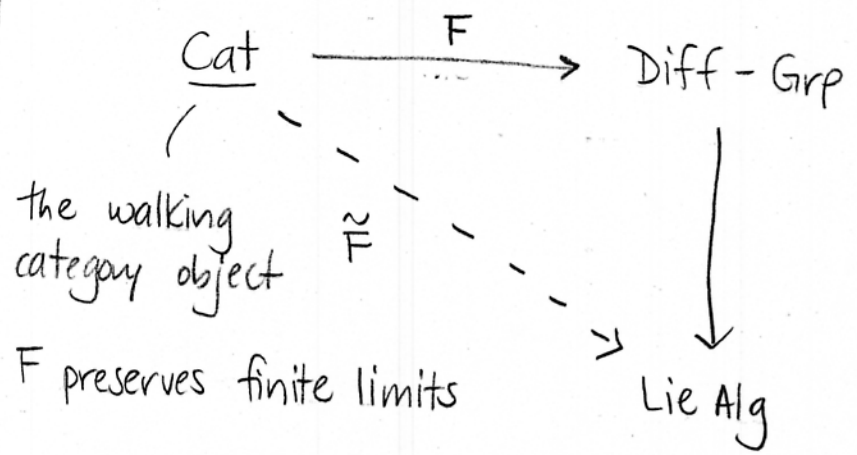 F
Cat
Diff - Grp
the walking
category object
F̃
F preserves finite limits
Lie Alg